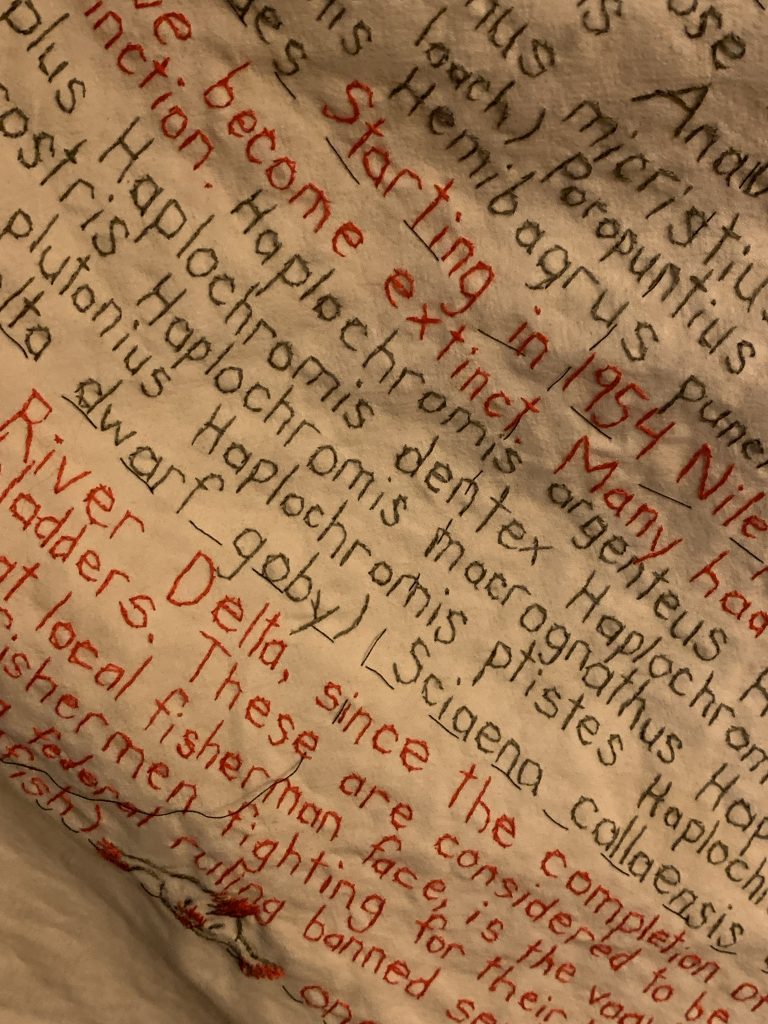 ose
s Anab
nus micristius
loach) Poropuntius
nis Hemibagrus punc
des Starting in 1954 Nile
ve become extinct. Many had
inction. Haplochromis argenteus H
plus Haplochromis dentex Haplochrom
ostris Haplochromis macrognathus Hap
plutonius Haplochromis ptistes Haplochr
lta dwarf goby) (Sciaena callaensis
River Delta, since the completion of
ladders. These are considered to be
at local fisherman face, is the vaq
ishermen fighting for their
federal ruling banned se
fish) one